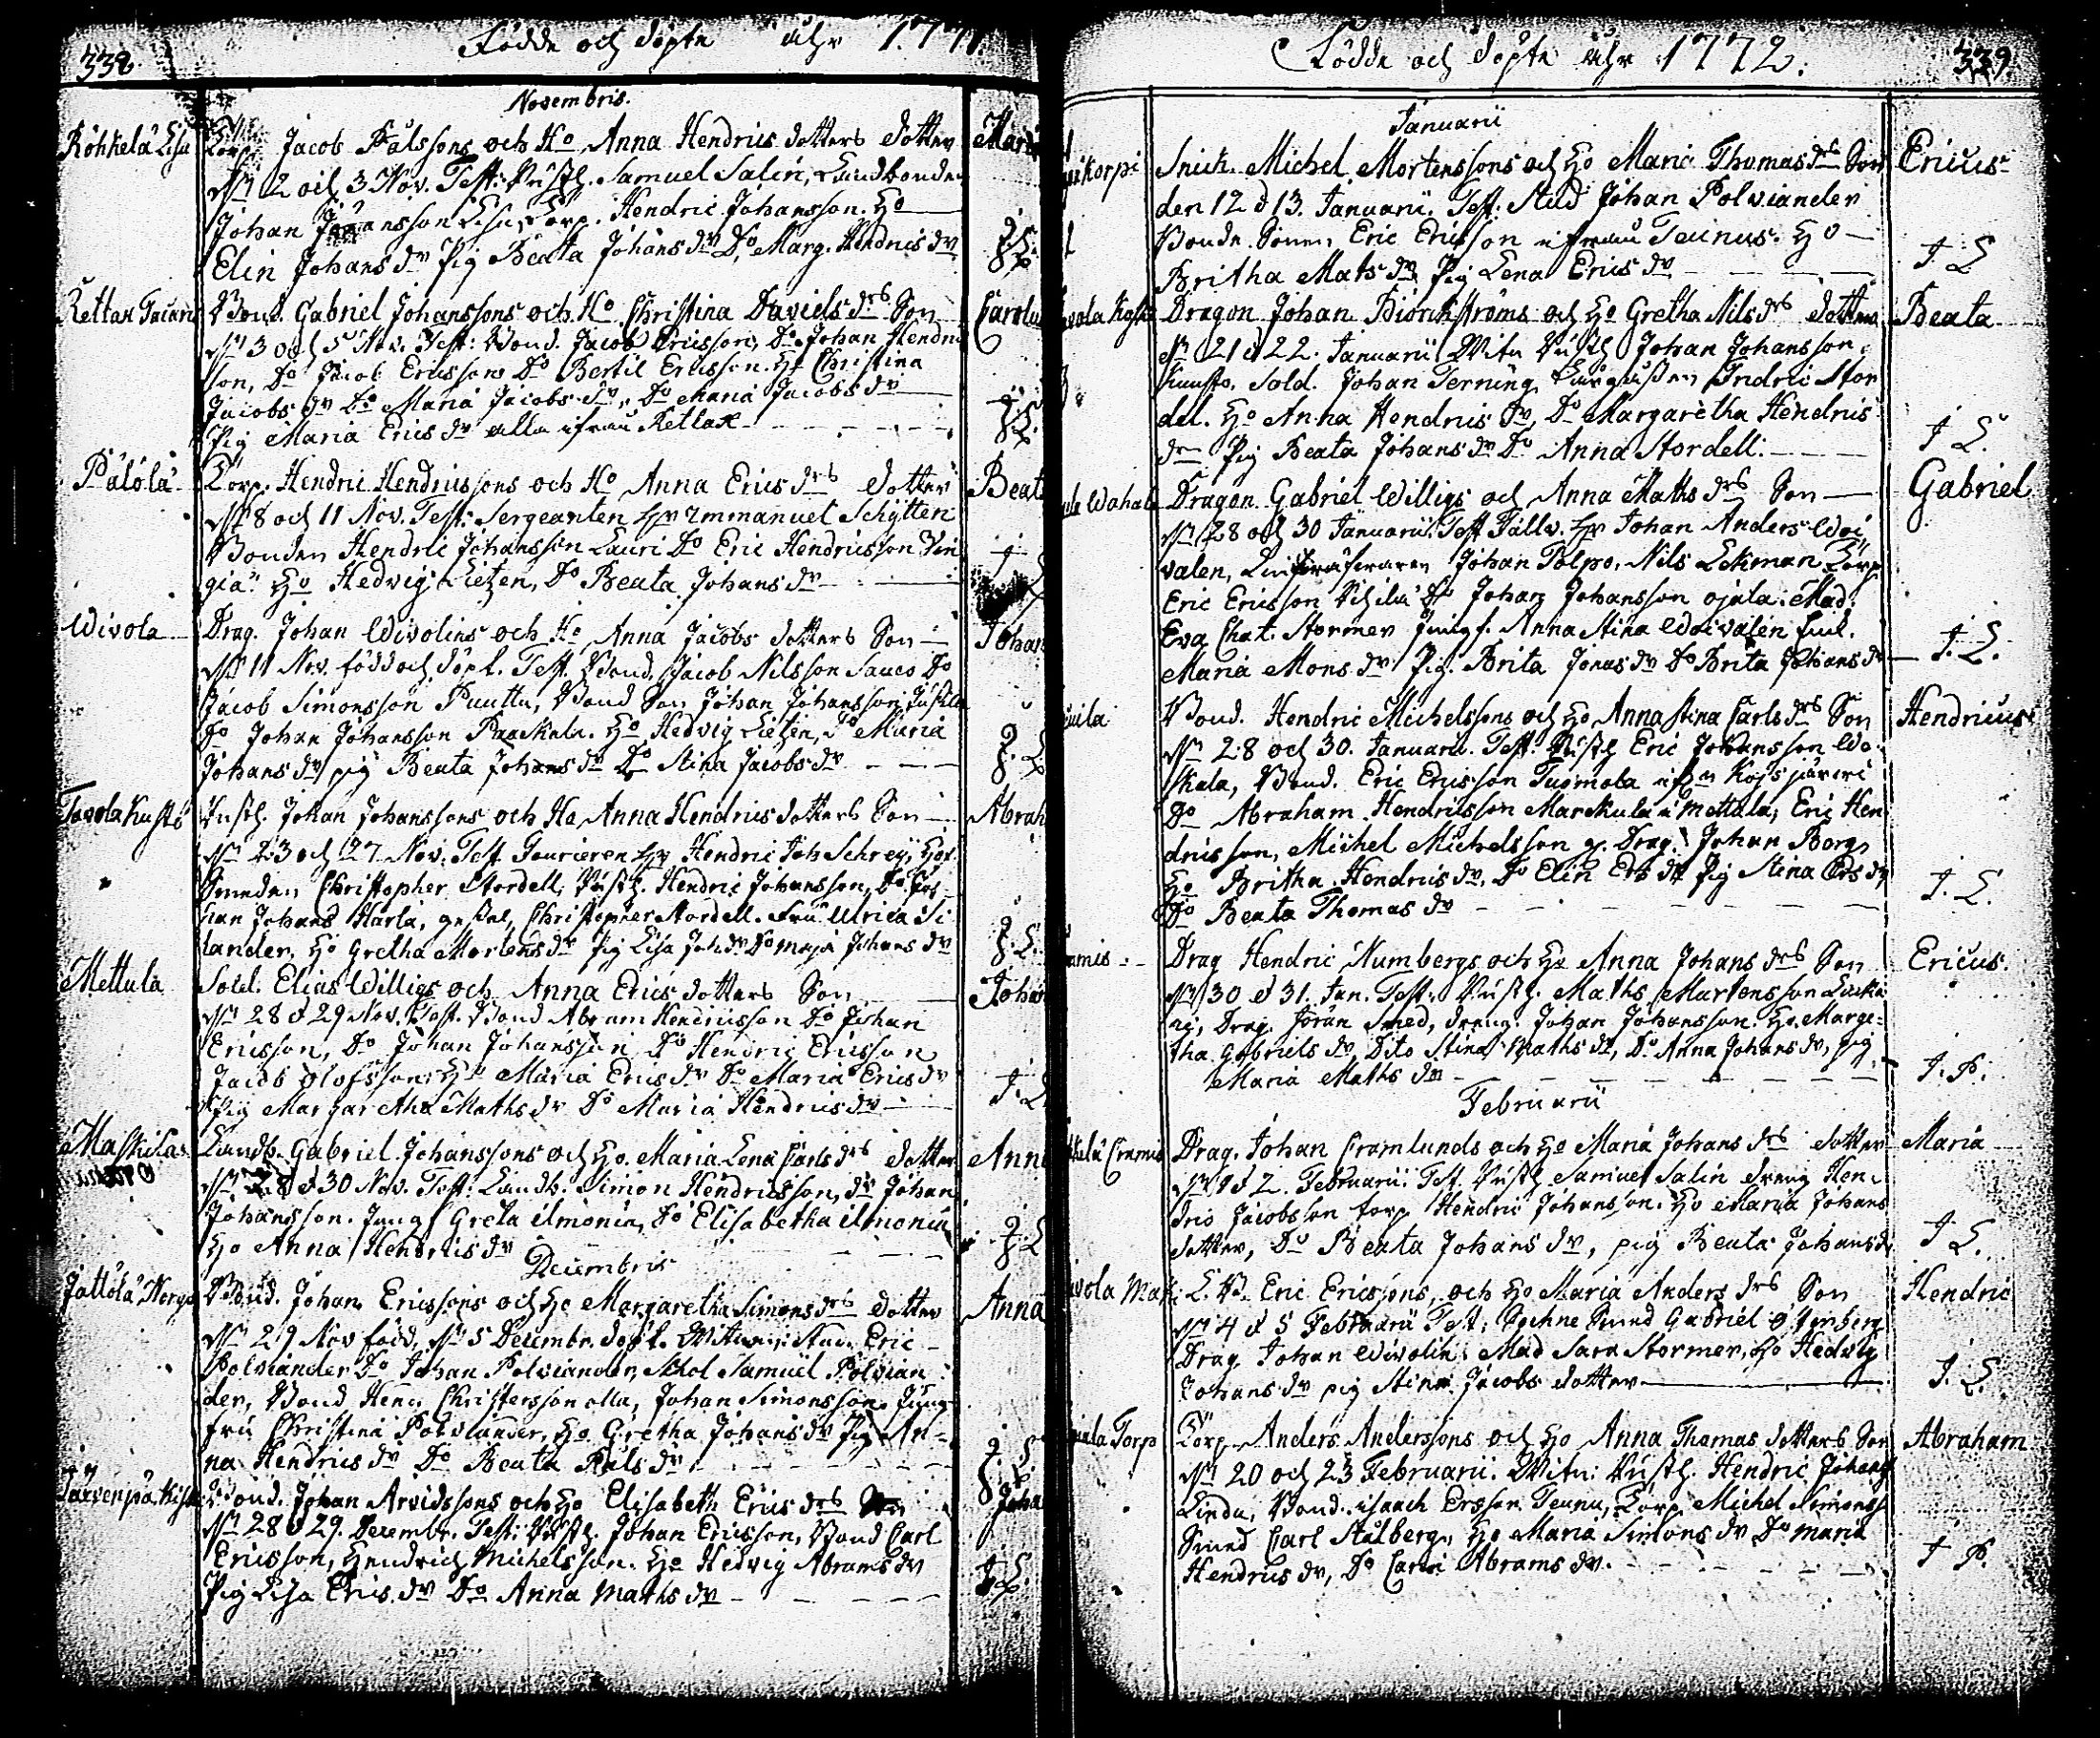 338.
Födde och döpte åhr 1771.
Novembris.
Röhkelä Lisu
Torp. Jacob Pålssons och Ho Anna Hendrics dotters dotter
Maria
dn 2 och 3 Nov. Test: Rusth. Samuel Salin, Landbonden
Johan Johansson Lisu, Torp. Hendric Johansson. Ho
Elin Johans dr Pig Beata Johans dr Do Marg. Hendrics dr
Kettax
Bond. Gabriel Johanssons och Ho Christina Davids drs Son
Carolus
dn 3 och 5 Nov. Test: Bond. Jacob Ericsson, Do Johan Hendric
son, Do Jacob Ericsson Do Bertil Ericsson. Ho Christina
Jacobs dr Do Maria Jacobs dr, Do Maria Jacobs dr
Pig Maria Erics dr alla ifrån Kettax
Pälölä
Torp. Hendric Hendricssons och Ho Anna Erics drs dotter
Beata
dn 8 och 11 Nov. Test: Sergeanten Hr Immanuel Schytten
Bonden Hendric Johansson Lauri Do Eric Hendricsson
Ho Hedvig Lietzen, Do Beata Johans dr
Wivola
Drag. Johan Wivolins och Ho Anna Jacobs dotters Son
Johan
dn 11 Nov. född och döpt. Test. Bond. Jacob Nilsson Sauco Do
Jacob Simonsson Puuttu, Bond Son Johan Johansson
Do Johan Johansson Raaskala. Ho Hedvig Lietzen, Do Maria
Johans dr pig Beata Johans dr Do Stina Jacobs dr
Tavola Kusto
Rusth. Johan Johanssons och Ho Anna Hendrics dotters Son
Abrah
dn 23 och 27 Nov. Test Fourieren Hr Hendric Joh Schrey, Hof
Smeden Christopher Stordell, Rusth. Hendric Johansson, Do Joh
han Johans Harla, Christopher Stordell. Fru Ulrica Si
lander, Ho Gretha Mortens dr Pig Lisa Joh dr Do Maja Johans dr
Mettula
Sold. Elias Willigs och Anna Erics dotters Son
Johan
dn 28 d 29 Nov. Test. Bond Abram Hendricsson Do Johan
Ericsson, Do Johan Johansson Do Hendric Ericsson
Jacob Olofsson, Ho Maria Erics dr Do Maria Erics dr
Pig Margaretha Maths dr Do Maria Hendrics dr
Maskila
Landb. Gabriel Johanssons och Ho Maria Lena Carls drs dotter
Anna
dn 28 d 30 Nov. Test: Landb. Simon Hendricsson, dr Johan
Johansson. Jungf Greta ilmonia, Do Elisabetha ilmonia
Ho Anna Hendrics dr
Decembris
Jättölä Norgå
Bond. Johan Ericssons och Ho Margaretha Simons drs dotter
Anna
dn 29 Nov född, dn 5 Decembr. döpt. Witnen: Stud. Eric
Polviander Do Johan Polviander, Schol Samuel Polvian
der, Bond Henr. Christersson olla, Johan Simonsson. Jung
fru Christina Polviander, Ho Gretha Johans dr Pig An-
na Hendrics dr Do Beata Påls dr
Järvenpä
Bond. Johan Arvidssons och Ho Elisabeth Erics drs Son
Joha
dn 28 d 29. Decembr. Test: Rusth. Johan Ericsson, Bond Carl
Ericsson, Hendrich Michelsson. Ho Hedvig Abrams dr
Pig Lisa Erics dr Do Anna Maths dr
Födde och döpte åhr 1772.
339.
Januarii
Snick. Michel Mortenssons och Ho Maria Thomas drs Son
Ericus
den 12 d 13. Januarii. Test. Stud Johan Polviander
Bonde Sonen Eric Ericsson ifrån Teinus. Ho
Britha Mats dr Pig Lena Erics dr
I L
Dragon Johan Biörckströms och Ho Gretha Nils drs dotter
Beata
dn 21 d 22. Januarii Witn Rusth Johan Johansson
Kuusto, Sold. Johan Terning, Indric Stor
del. Ho Anna Hendrics dr, Do Margaretha Hendrics
dr Pig Beata Johans dr Do Anna Stordell.
I L
Dragon Gabriel Willigs och Anna Maths drs Son
Gabriel
dn 28 och 30 Januarii. Test Fältw. Hr Johan Anders Woi
valen, Johan Polpo, Nils Ekman Torp
Eric Ericsson Do Johan Johansson ojala. Mad.
Eva Chat. Stormer Jungf. Anna Stina Woivalen
Maria Mons dr Pig. Brita Jonas dr Do Brita Johans dr
I. L.
Bond. Hendric Michelssons och Ho Anna Stina Carls drs Son
Hendricus
dn 28 och 30. Januarii. Test: Rusth Eric Johansson Wo
skala, Bond. Eric Ericsson Tuomola ifrån Kojsjärvi
Do Abraham Hendricsson Marckula i Mettula, Eric Hen
dricsson, Michel Michelsson gr. Drag. Johan Borg
Ho Britha Hendrics dr, Do Elin Ers dr Pig Stina Ers dr
Do Beata Thomas dr
I. L.
Drag Hendric Numbergs och Ho Anna Johans drs Son
Ericus.
dn 30 d 31. Jan. Test. Rusth. Maths Martensson
Drag. Jöran Smed, dreng. Johan Johansson. Ho Marge-
tha Gabriels dr, Dito Stina Maths dr, Do Anna Johans dr, pig
Maria Maths dr
I. P.
Februarii
Drag. Johan Cramlunds och Ho Maria Johans drs dotter
Maria
dn 1 d 2. Februarii. Test. Rusth Samuel Salin dreng Hen
dric Jacobsson torp Hendric Johansson. Ho Maria Johans
dotter, Do Beata Johans dr, pig Beata Johans dr
I L.
L. B. Eric Ericssons och Ho Maria Anders drs Son
Hendric
dn 4 d 5 Februarii Test: Sochne Smed Gabriel
Drag. Johan Wivolin. Mad Sara Stormer, Ho Hedvig
Johans dr pig Stina Jacobs dotter
I. L.
Torp. Anders Anderssons och Ho Anna Thomas dotters Son
Abraham
dn 20 och 23 Februarii. Witn: Rusth. Hendric Johans
Linda, Bond. isaach Ersson Teunu, Torp. Michel Simonss
Smed Carl Stålberg, Ho Maria Simons dr Do Maria
Hendrics dr, Do Carin Abrams dr.
I P.